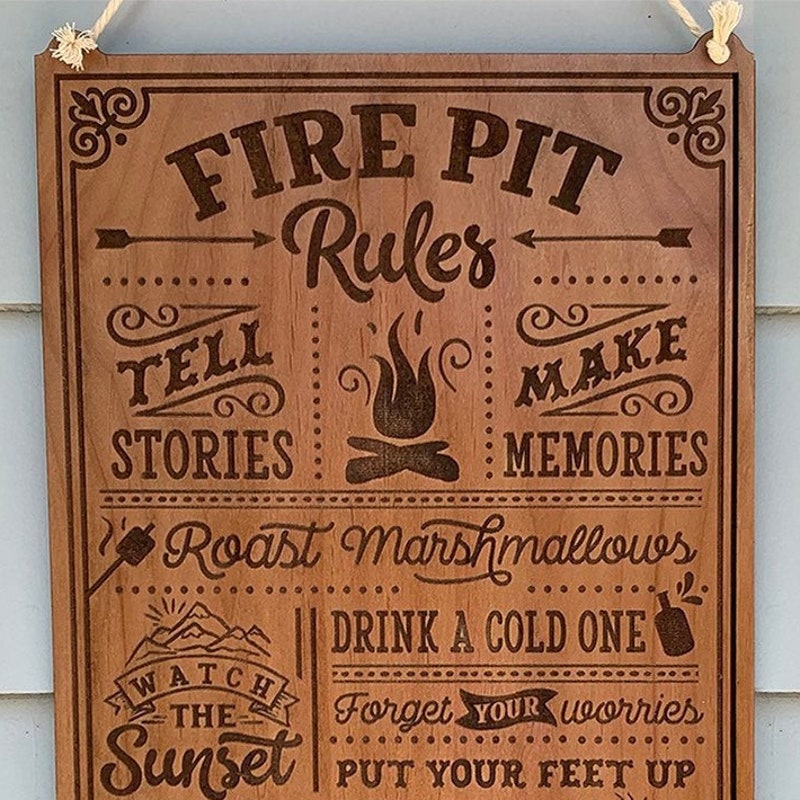 FIRE PIT
Rules
TELL
STORIES
MAKE
MEMORIES
Roast Marshmallows
WATCH
THE
Sunset
DRINK A COLD ONE
Forget YOUR worries
PUT YOUR FEET UP